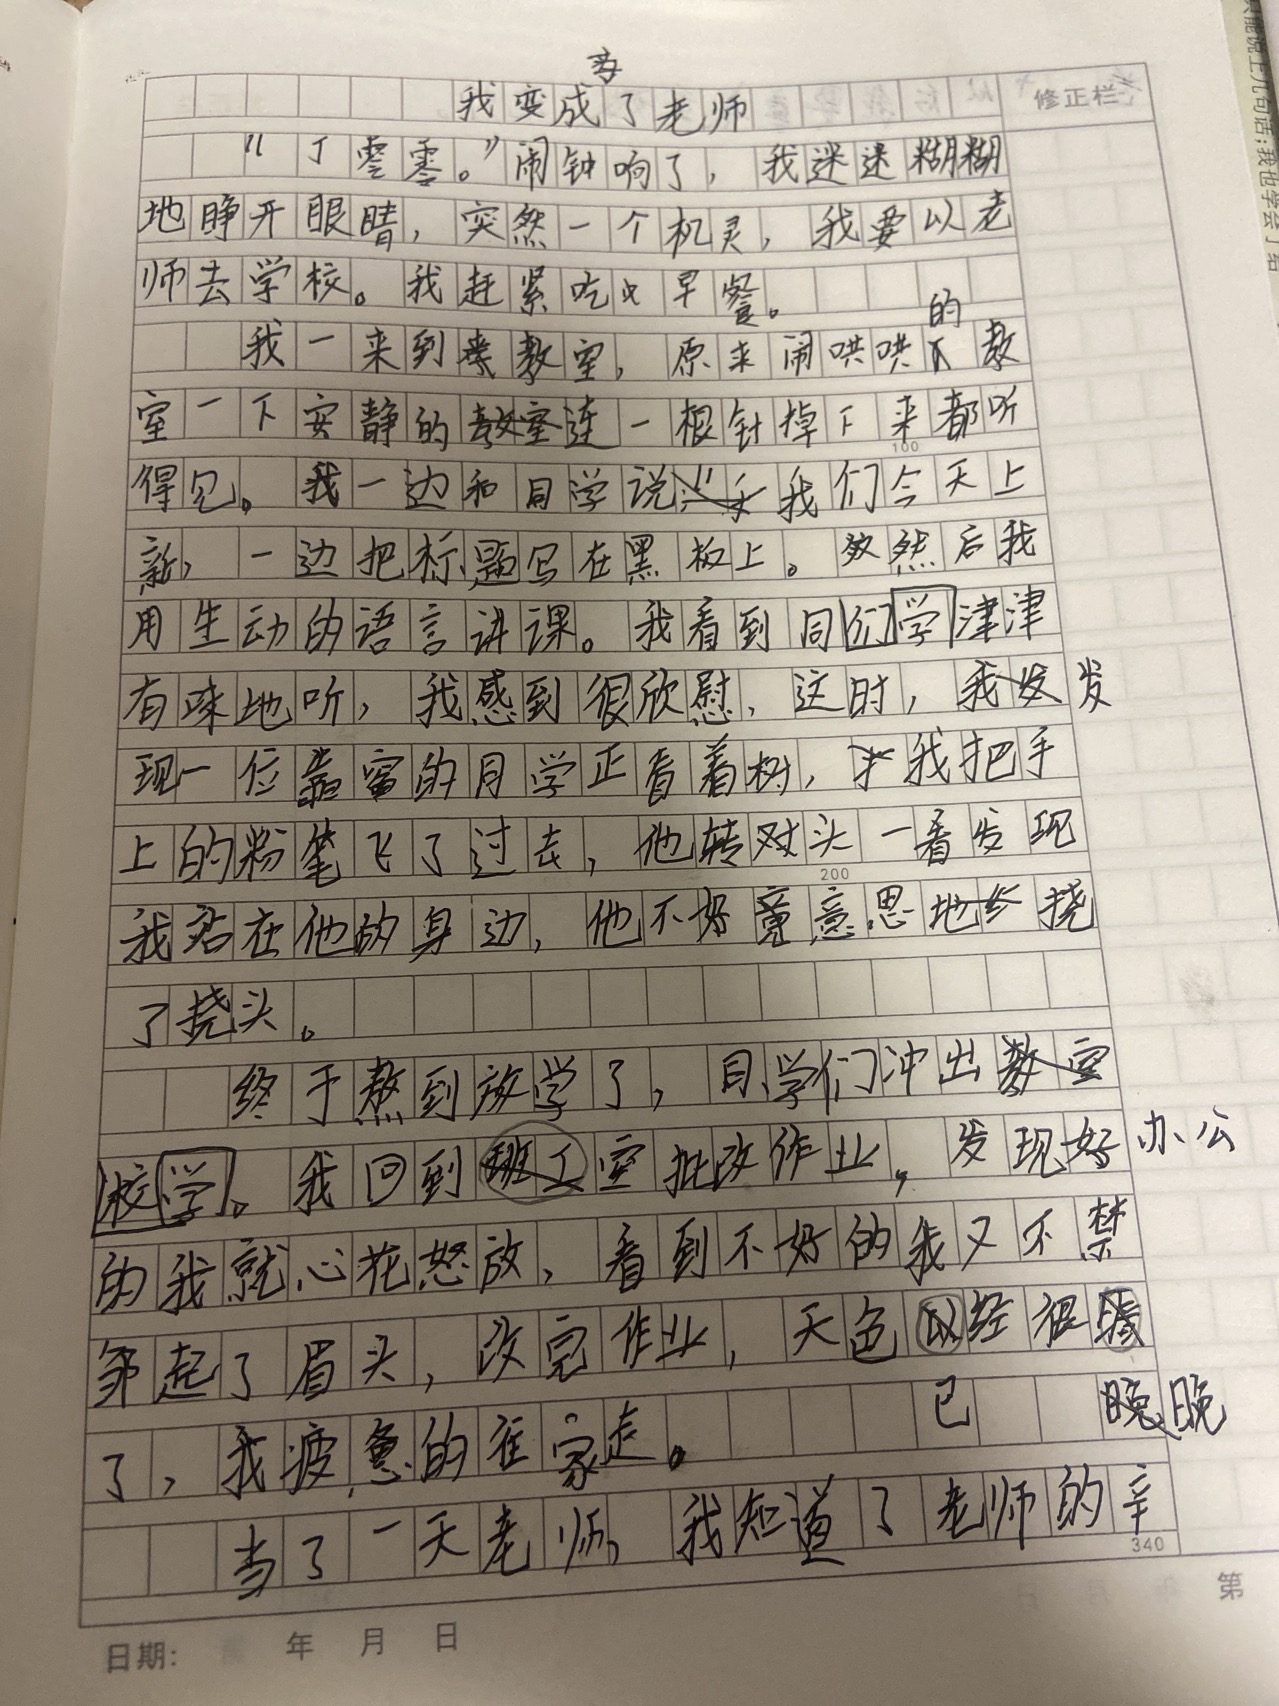 我变成了老师
修正栏
“丁零零。”闹钟响了，我迷迷糊糊
地睁开眼睛，突然一个机灵，我要以老
师去学校。我赶紧吃早餐。
我一来到教室，原来闹哄哄的教
室一下安静的教室连一根针掉下来都听
100
得见。我一边和同学说我们今天上
新，一边把标题写在黑板上。然后我
用生动的语言讲课。我看到同们学津津
有味地听，我感到很欣慰，这时，我发
现一位靠窗的同学正看着树，我把手
上的粉笔飞了过去，他转对头一看发现
200
我站在他的身边，他不好意思地挠
了挠头。
终于熬到放学了，同学们冲出
校学。我回到办公室批改作业，发现好
的我就心花怒放，看到不好的我又不禁
邹起了眉头，改完作业，天色已经很晚
了，我疲惫的往家走。
当了一天老师，我知道了老师的辛
340
日期： 年 月 日
第